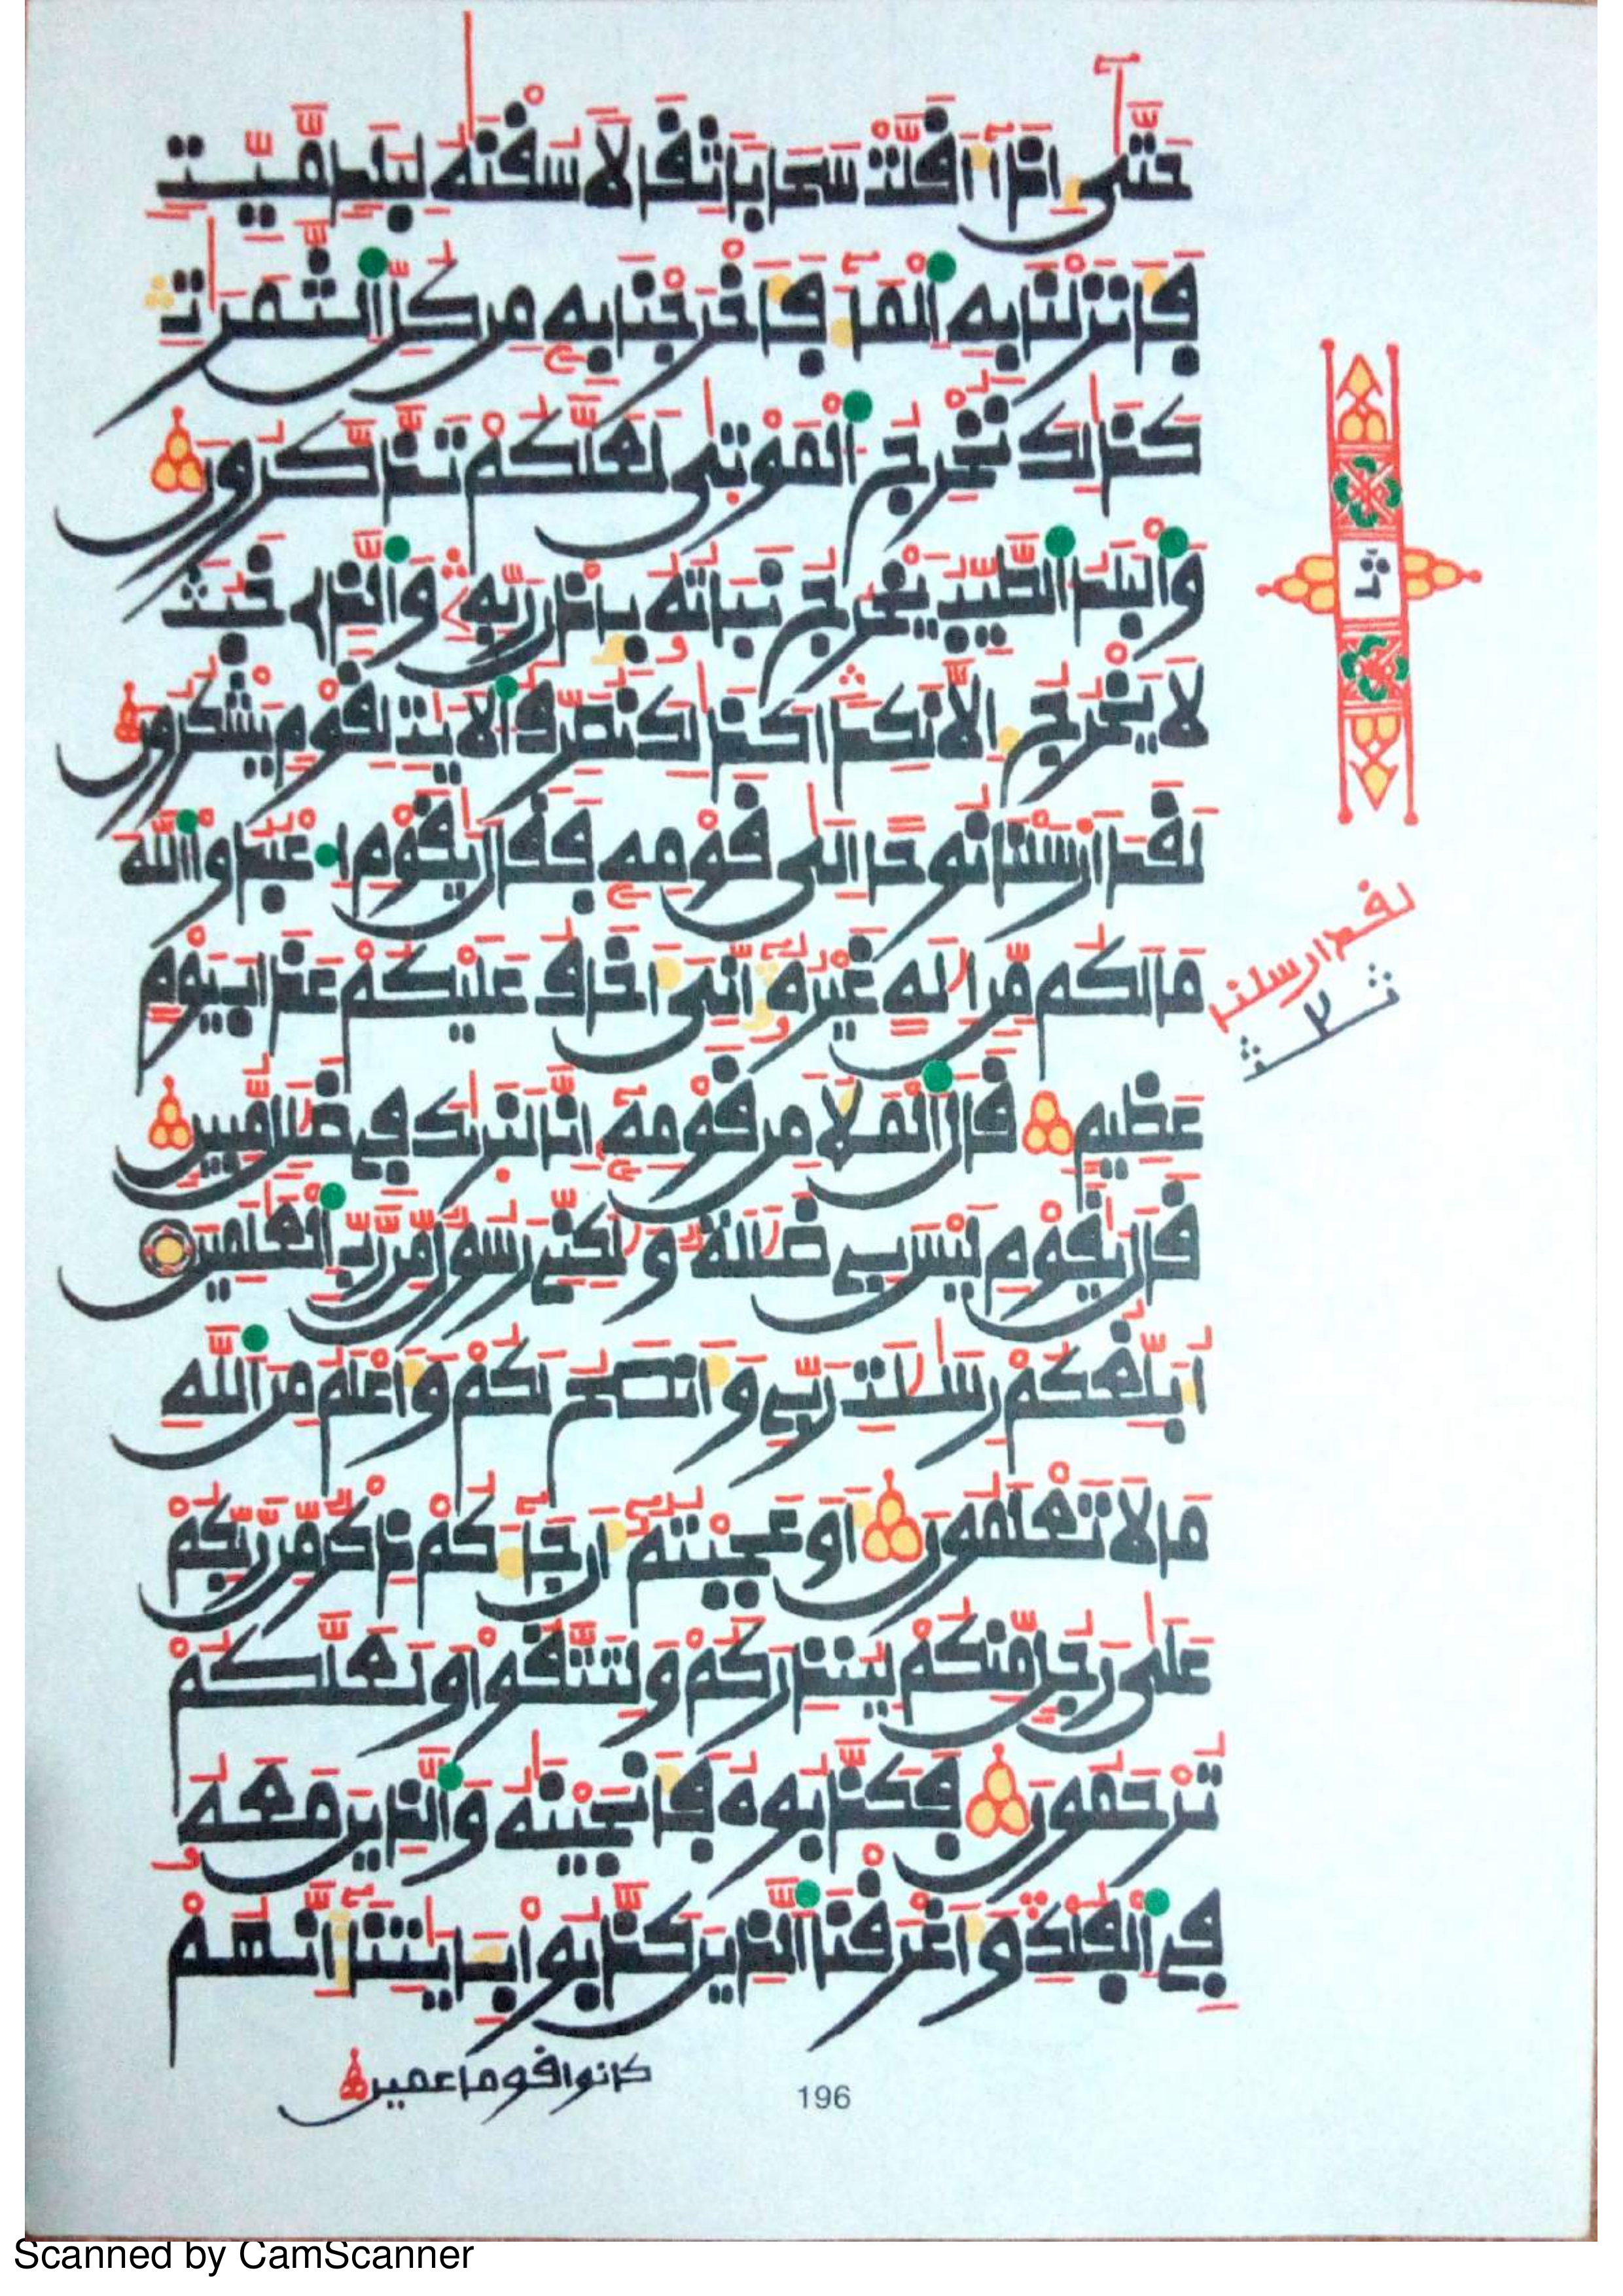 حَتَّىٰٓ إِذَآ أَقَلَّتْ سَحَابٗا ثِقَالٗا سُقْنَٰهُ لِبَلَدٖ مَّيِّتٖ
فَأَنزَلْنَا بِهِ ٱلْمَآءَ فَأَخْرَجْنَا بِهِۦ مِن كُلِّ ٱلثَّمَرَٰتِ
كَذَٰلِكَ نُخْرِجُ ٱلْمَوْتَىٰ لَعَلَّكُمْ تَذَّكَّرُونَ
وَٱلْبَلَدُ ٱلطَّيِّبُ يَخْرُجُ نَبَاتُهُۥ بِإِذْنِ رَبِّهِۦ وَٱلَّذِے خَبُثَ
لَا يَخْرُجُ إِلَّا نَكِدٗا كَذَٰلِكَ نُصَرِّفُ ٱلْأٓيَٰتِ لِقَوْمٖ يَشْكُرُونَ
لَقَدْ أَرْسَلْنَا نُوحًا إِلَىٰ قَوْمِهِۦ فَقَالَ يَٰقَوْمِ ٱعْبُدُواْ ٱللَّهَ
مَا لَكُم مِّنْ إِلَٰهٍ غَيْرُهُۥٓ إِنِّيَ أَخَافُ عَلَيْكُمْ عَذَابَ يَوْمٍ
عَظِيمٖ قَالَ ٱلْمَلَأُ مِن قَوْمِهِۦٓ إِنَّا لَنَرَىٰكَ فِے ضَلَٰلٖ مُّبِينٖ
قَالَ يَٰقَوْمِ لَيْسَ بِے ضَلَٰلَةٞ وَلَٰكِنِّے رَسُولٞ مِّن رَّبِّ ٱلْعَٰلَمِينَ
أُبَلِّغُكُمْ رِسَٰلَٰتِ رَبِّے وَأَنصَحُ لَكُمْ وَأَعْلَمُ مِنَ ٱللَّهِ
مَا لَا تَعْلَمُونَ أَوَعَجِبْتُمُۥٓ أَن جَآءَكُمْ ذِكْرٞ مِّن رَّبِّكُمْ
عَلَىٰ رَجُلٖ مِّنكُمْ لِيُنذِرَكُمْ وَلِتَتَّقُواْ وَلَعَلَّكُمْ
تُرْحَمُونَ فَكَذَّبُوهُ فَأَنجَيْنَٰهُ وَٱلَّذِينَ مَعَهُۥ
فِے ٱلْفُلْكِ وَأَغْرَقْنَا ٱلَّذِينَ كَذَّبُواْ بِـَٔايَٰتِنَآ إِنَّهُمْ
كانوا قوما عمين
لقد ارسلنا
ث ٢ ث
196
Scanned by CamScanner